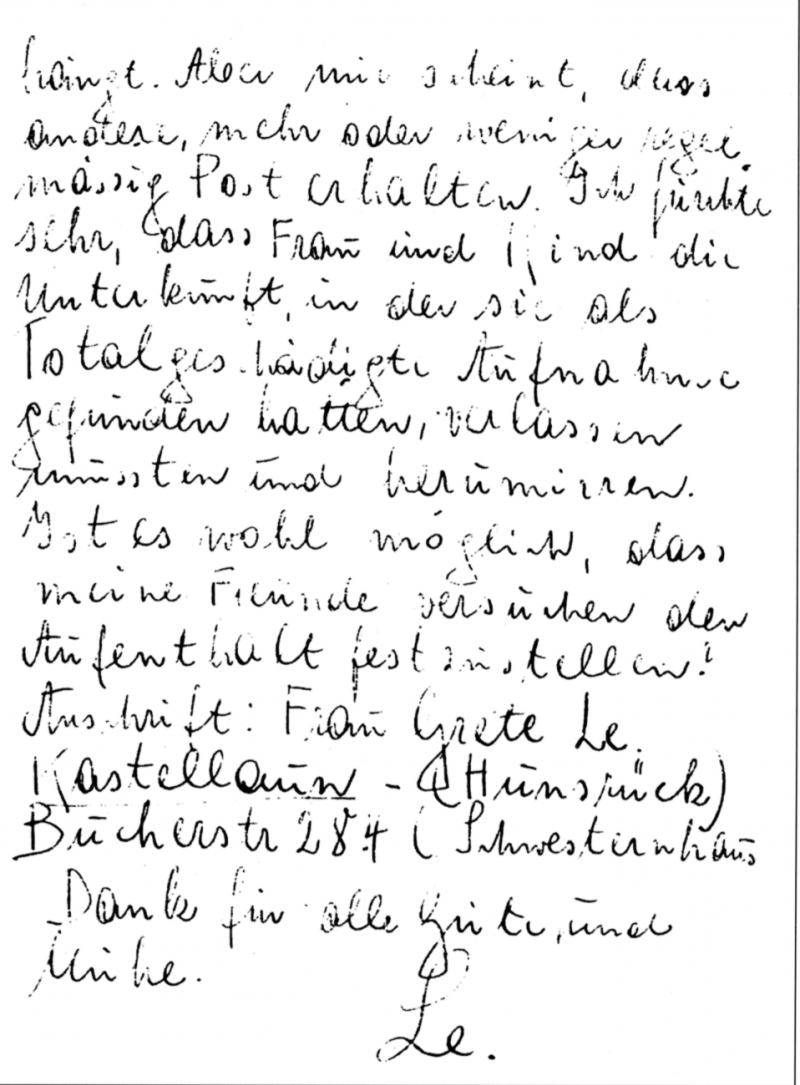 hängt. Aber mir scheint, dass
andere, mehr oder weniger regel
mässig Post erhalten. Ich fürchte
sehr, dass Frau und Kind die
Unterkunft, in der sie als
Totalgeschädigte Aufnahme
gefunden hatten, verlassen
mussten und herumirren.
Ist es wohl möglich, dass
meine Freunde versuchen den
Aufenthalt festzustellen?
Anschrift: Frau Grete Le.
Kastellaun - (Hunsrück)
Bucherstr 284 (Schwesternhaus
Dank für alle Güte, und
Mühe.
Le.